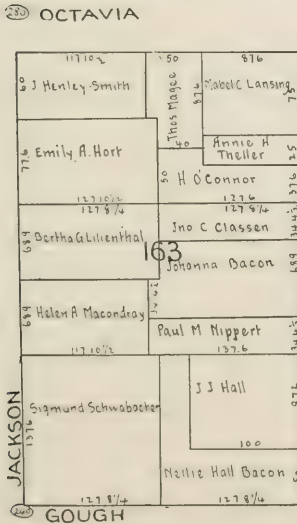 280 OCTAVIA
117 10½
50
87 6
60
J Henley Smith
Thos Magee
87 6
Mabel C Lansing
75
40
Annie H
Theller
25
77 6
Emily A. Hort
50
H O'Connor
37 6
127 10½
127 6
127 8¼
127 8¼
Bertha G Lilienthal
68 9
Jno C Classen
163
Johanna Bacon
68 9
Helen A Macondray
68 9
Paul M Nippert
117 10½
137.6
JACKSON
137 6
Sigmund Schwabacher
J J Hall
97 6
100
Nellie Hall Bacon
127 8¼
127 8¼
GOUGH